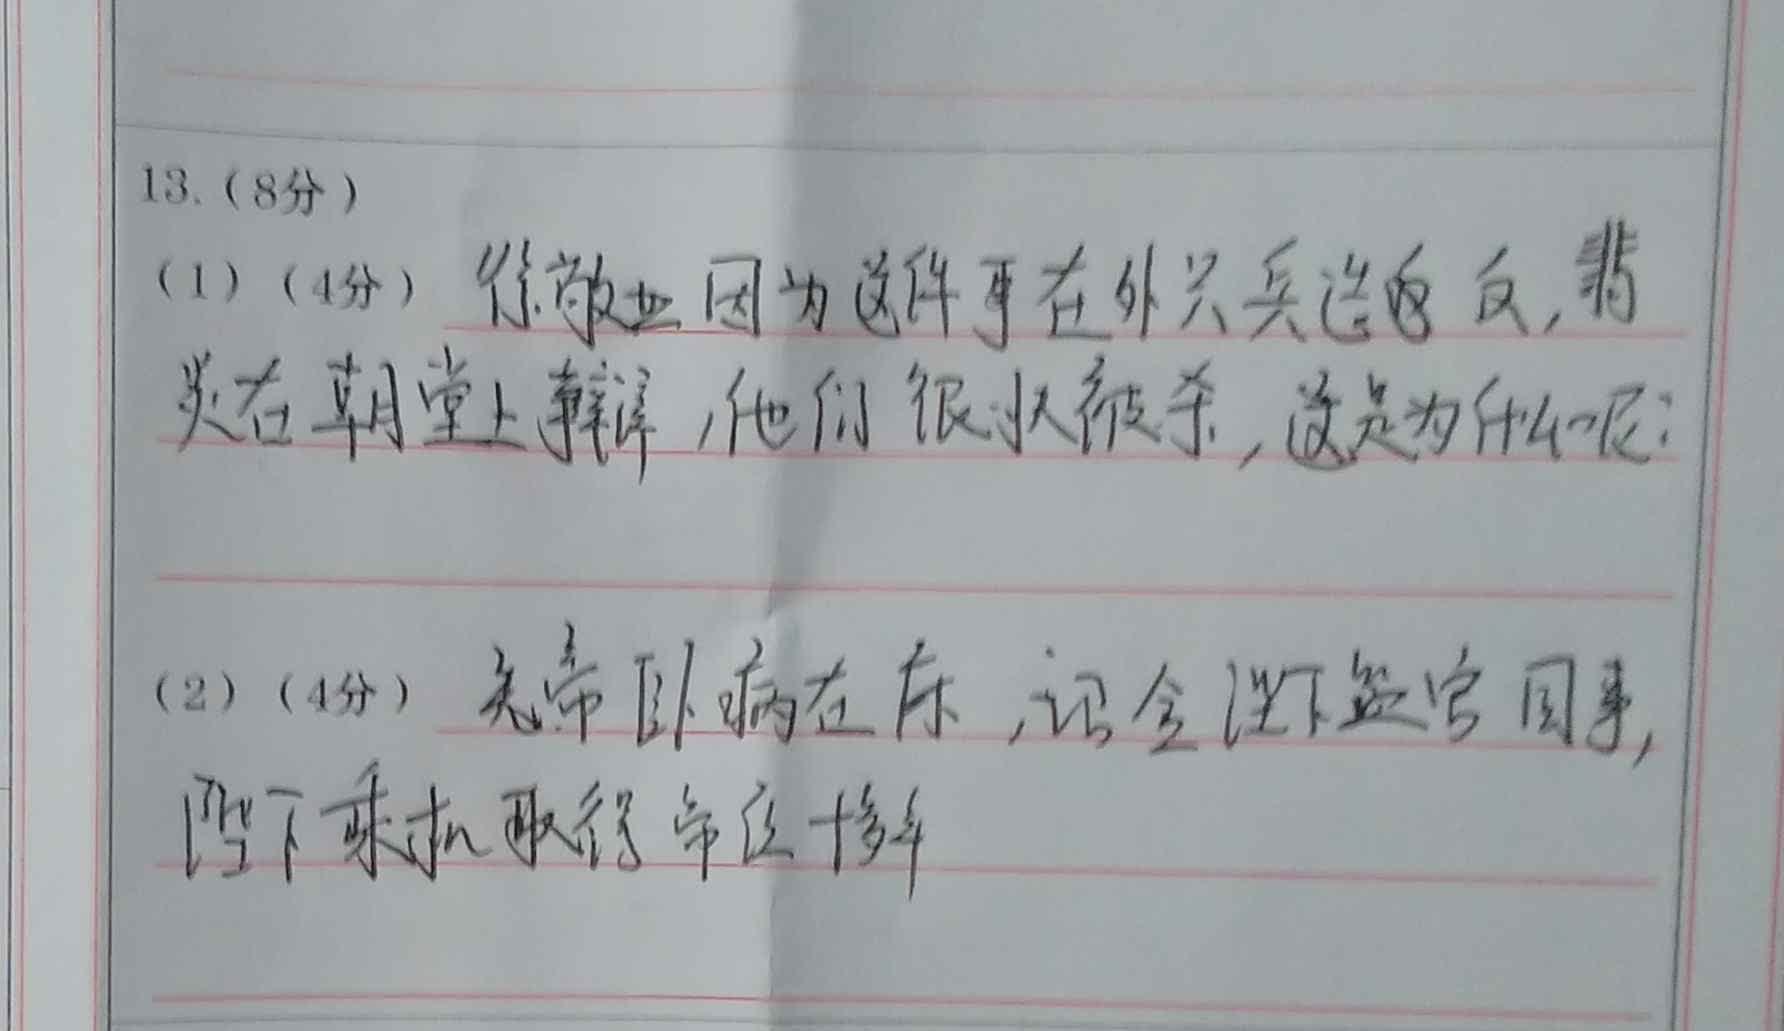 13.(8分)
(1)(4分) 徐敬业因为这件事在外兴兵造反,裴
炎在朝堂上辩 ,他们很快被杀,这是为什么呢:
(2)(4分) 先帝卧病在床,诏令陛下监官国事,
陛下乘机取得帝位十多年